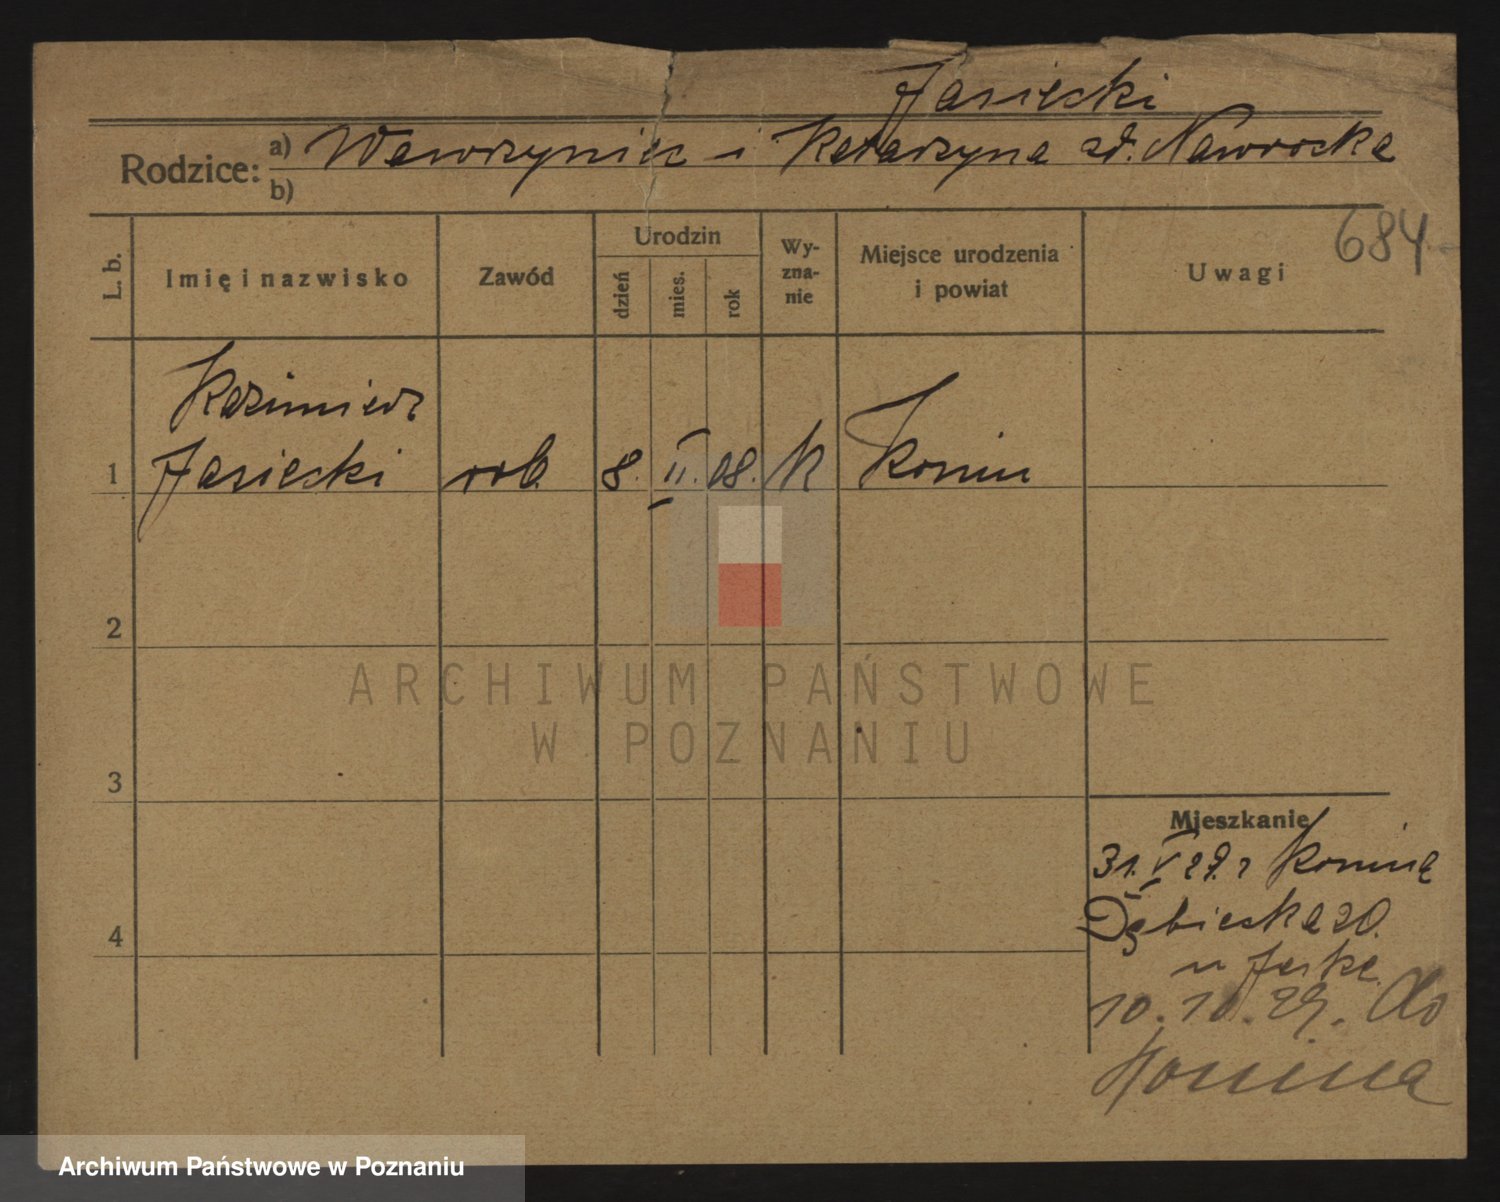 Jasiecki
Rodzice: a) Wawrzyniec i Katarzyna zd. Nawrocka
b)
684
L. b. Imię i nazwisko Zawód Urodzin dzień mies. rok Wy-zna-nie Miejsce urodzenia i powiat Uwagi
Kazimierz
1 Jasiecki rob. 8. II. 08. K Konin
2
3
4
Mieszkanie
31. V 29. z Konina
Dąbieska 20.
u
10. 10. 29. do
Konina
ARCHIWUM PAŃSTWOWE
W POZNANIU
Archiwum Państwowe w Poznaniu